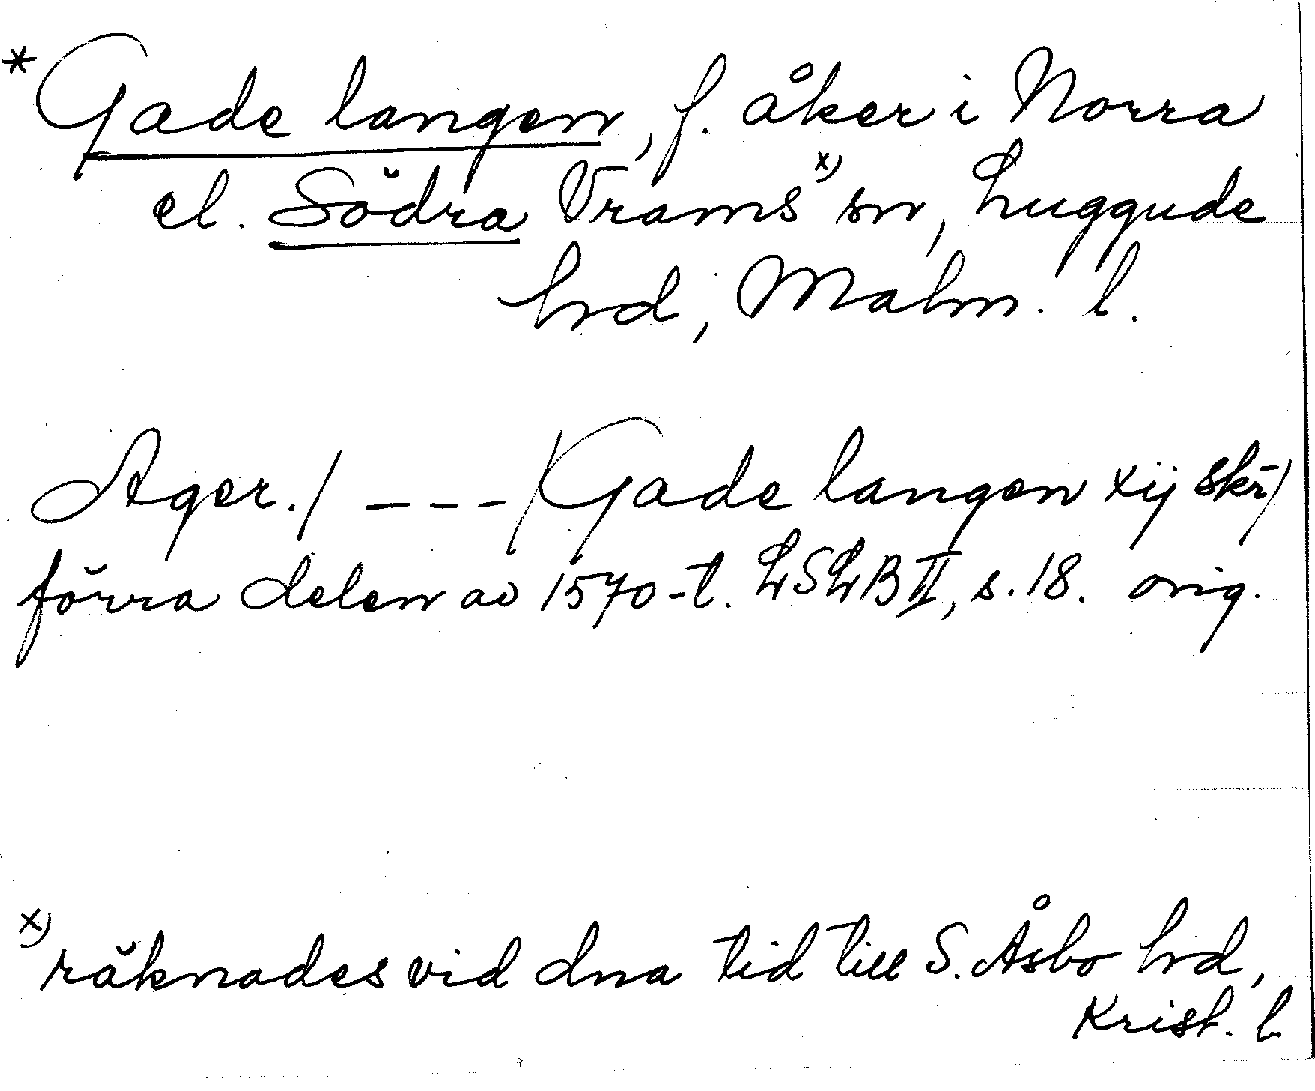 *Gade langen, f. åker i Norra
el. Södra Vrams x) sn, Luggude
hrd, Malm. l.
Ager. / _ _ _ / Gade langen xij skr̄ /
förra delen av 1570-t. LSLB II, s. 18. orig.
x) räknades vid dna tid till S. Åsbo hrd,
Krist. l.